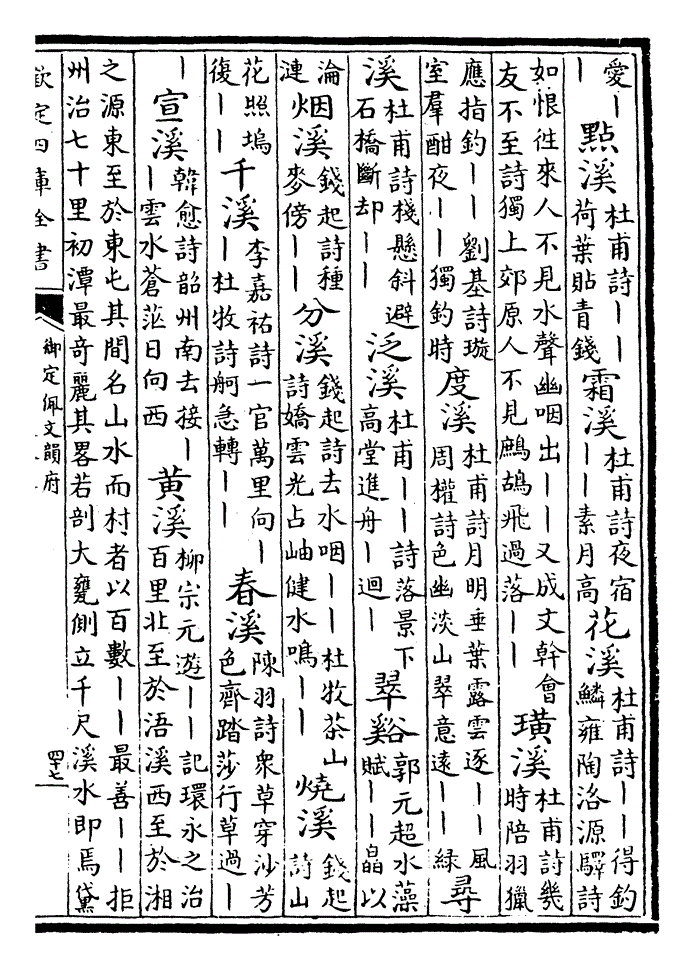 愛丨丨點溪杜甫詩丨丨荷葉貼青錢霜溪杜甫詩夜宿丨丨素月高花溪杜甫詩丨丨得釣鱗雍陶洛源驛詩
如恨往來人不見水聲幽咽出丨丨又成文幹會友不至詩獨上郊原人不見鷓鴣飛過落丨丨璜溪杜甫詩幾時陪羽獵
應指釣丨丨劉基詩璇室羣酣夜丨丨獨釣時度溪杜甫詩月明垂葉露雲逐丨丨風周權詩色幽淡山翠意遠丨丨緑尋
溪杜甫詩棧懸斜避石橋斷却丨丨泛溪杜甫丨丨詩落景下高堂進舟丨迴丨翠谿郭元超水藻賦丨丨皛以
淪漣烟溪錢起詩種麥傍丨丨分溪錢起詩去水咽丨丨杜牧茶山詩嬌雲光占岫健水鳴丨丨燒溪錢起詩山
花照塢復丨丨千溪李嘉祐詩一官萬里向丨丨杜牧詩舸急轉丨丨春溪陳羽詩衆草穿沙芳色齊踏莎行草過丨
丨宣溪韓愈詩韶州南去接丨丨雲水蒼茫日向西黄溪柳宗元遊丨丨記環永之治百里北至於浯溪西至於湘
之源東至於東屯其間名山水而村者以百數丨丨最善丨丨拒州治七十里初潭最奇麗其畧若剖大甕側立千尺溪水即焉黛
欽定四庫全書
御定佩文韻府
四十七